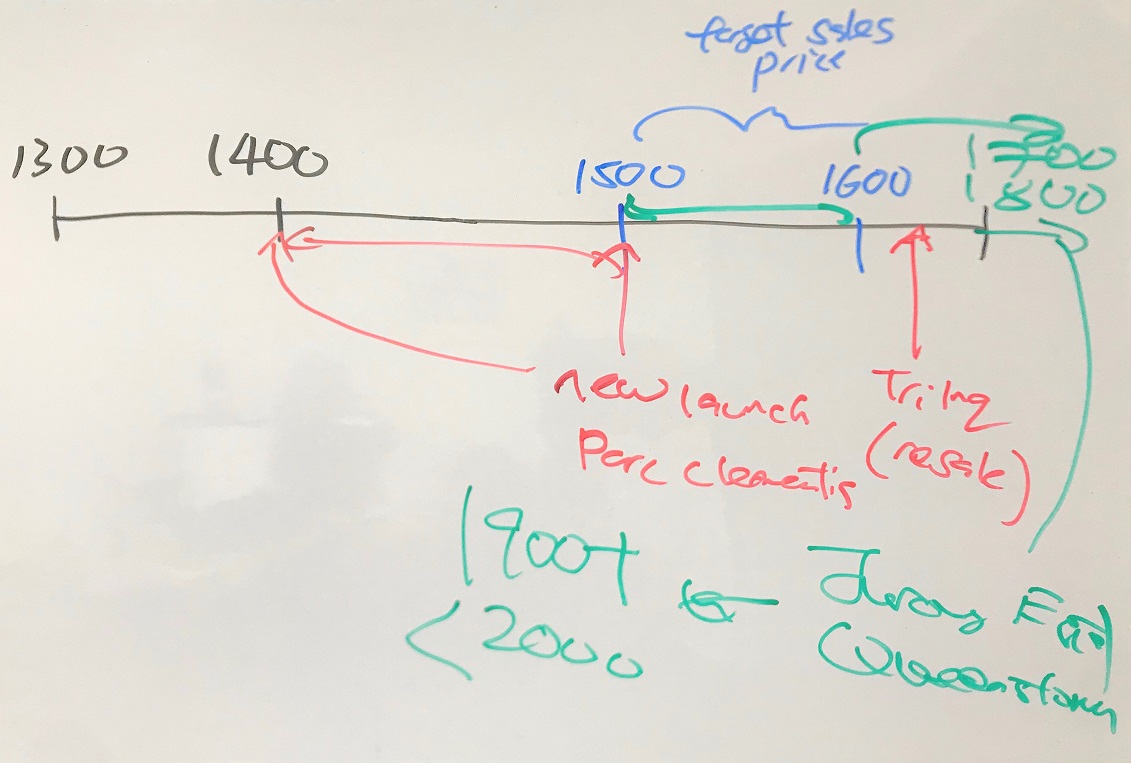 target sales
price
1300 1400 1500 1600 1700
1800
new launch
Parc Clementis
Trilinq
(resale)
1900+
<2000
Jurong East
Queenstown